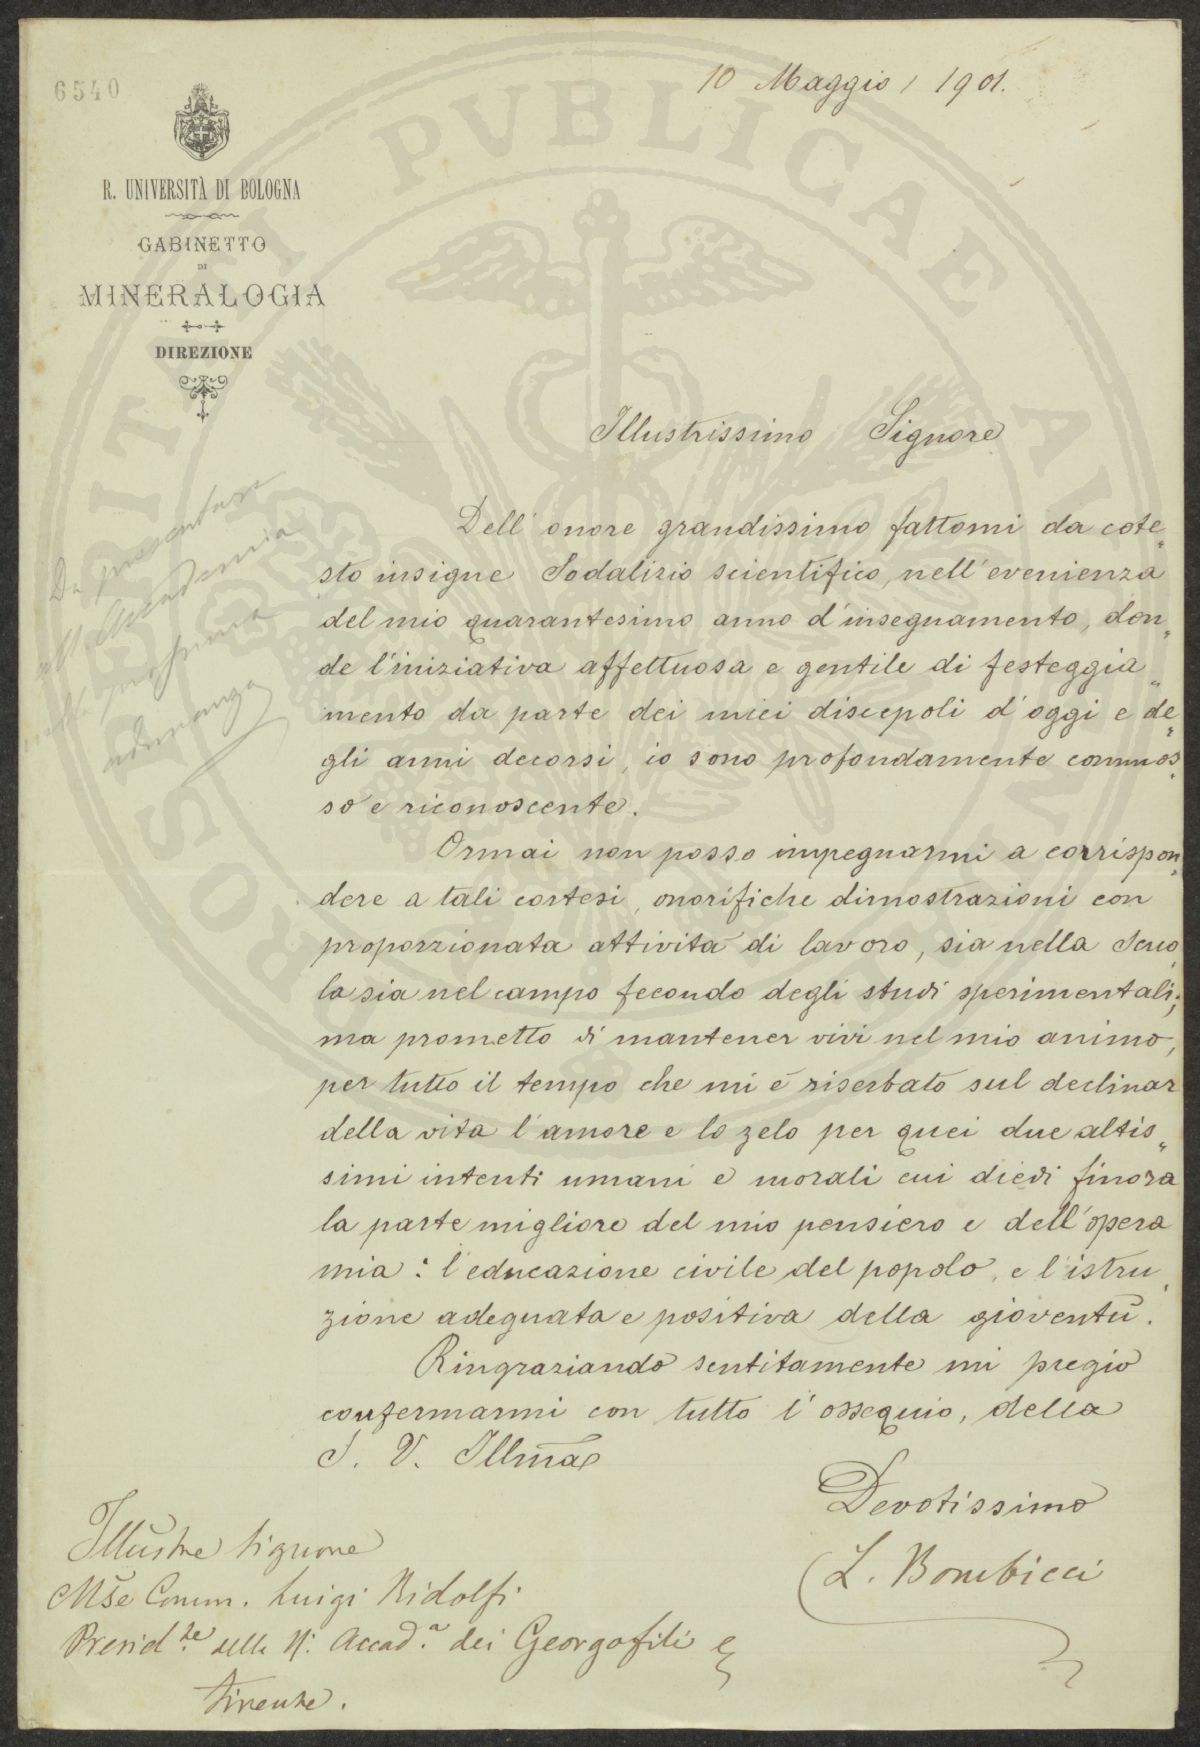 6540
10 Maggio 1901.
R. UNIVERSITÀ DI BOLOGNA
GABINETTO
DI
MINERALOGIA
DIREZIONE
PROSPERITATI PVBLICAE AVGENDAE
Illustrissimo Signore
Da presentare
all'Accademia
alla prossima
adunanza
Dell'onore grandissimo fattomi da cote„
sto insigne Sodalizio scientifico, nell'evenienza
del mio quarantesimo anno d'insegnamento, don„
de l'iniziativa affettuosa e gentile di festeggia„
mento da parte dei miei discepoli d'oggi e de„
gli anni decorsi, io sono profondamente commos„
so e riconoscente.
Ormai non posso impegnarmi a corrispon„
dere a tali cortesi, onorifiche dimostrazioni con
proporzionata attività di lavoro, sia nella Scuo„
la sia nel campo fecondo degli studi sperimentali;
ma prometto di mantener vivi nel mio animo,
per tutto il tempo che mi è riserbato sul declinar
della vita l'amore e lo zelo per quei due altis„
simi intenti umani e morali cui diedi finora
la parte migliore del mio pensiero e dell'opera
mia: l'educazione civile del popolo, e l'istru„
zione adeguata e positiva della gioventù.
Ringraziando sentitamente mi pregio
confermarmi con tutto l'ossequio, della
S. V. Illma
Devotissimo
L. Bombicci
Illustre Signore
Mse Comm. Luigi Ridolfi
Presidte della R. Accad.a dei Georgofili
Firenze.